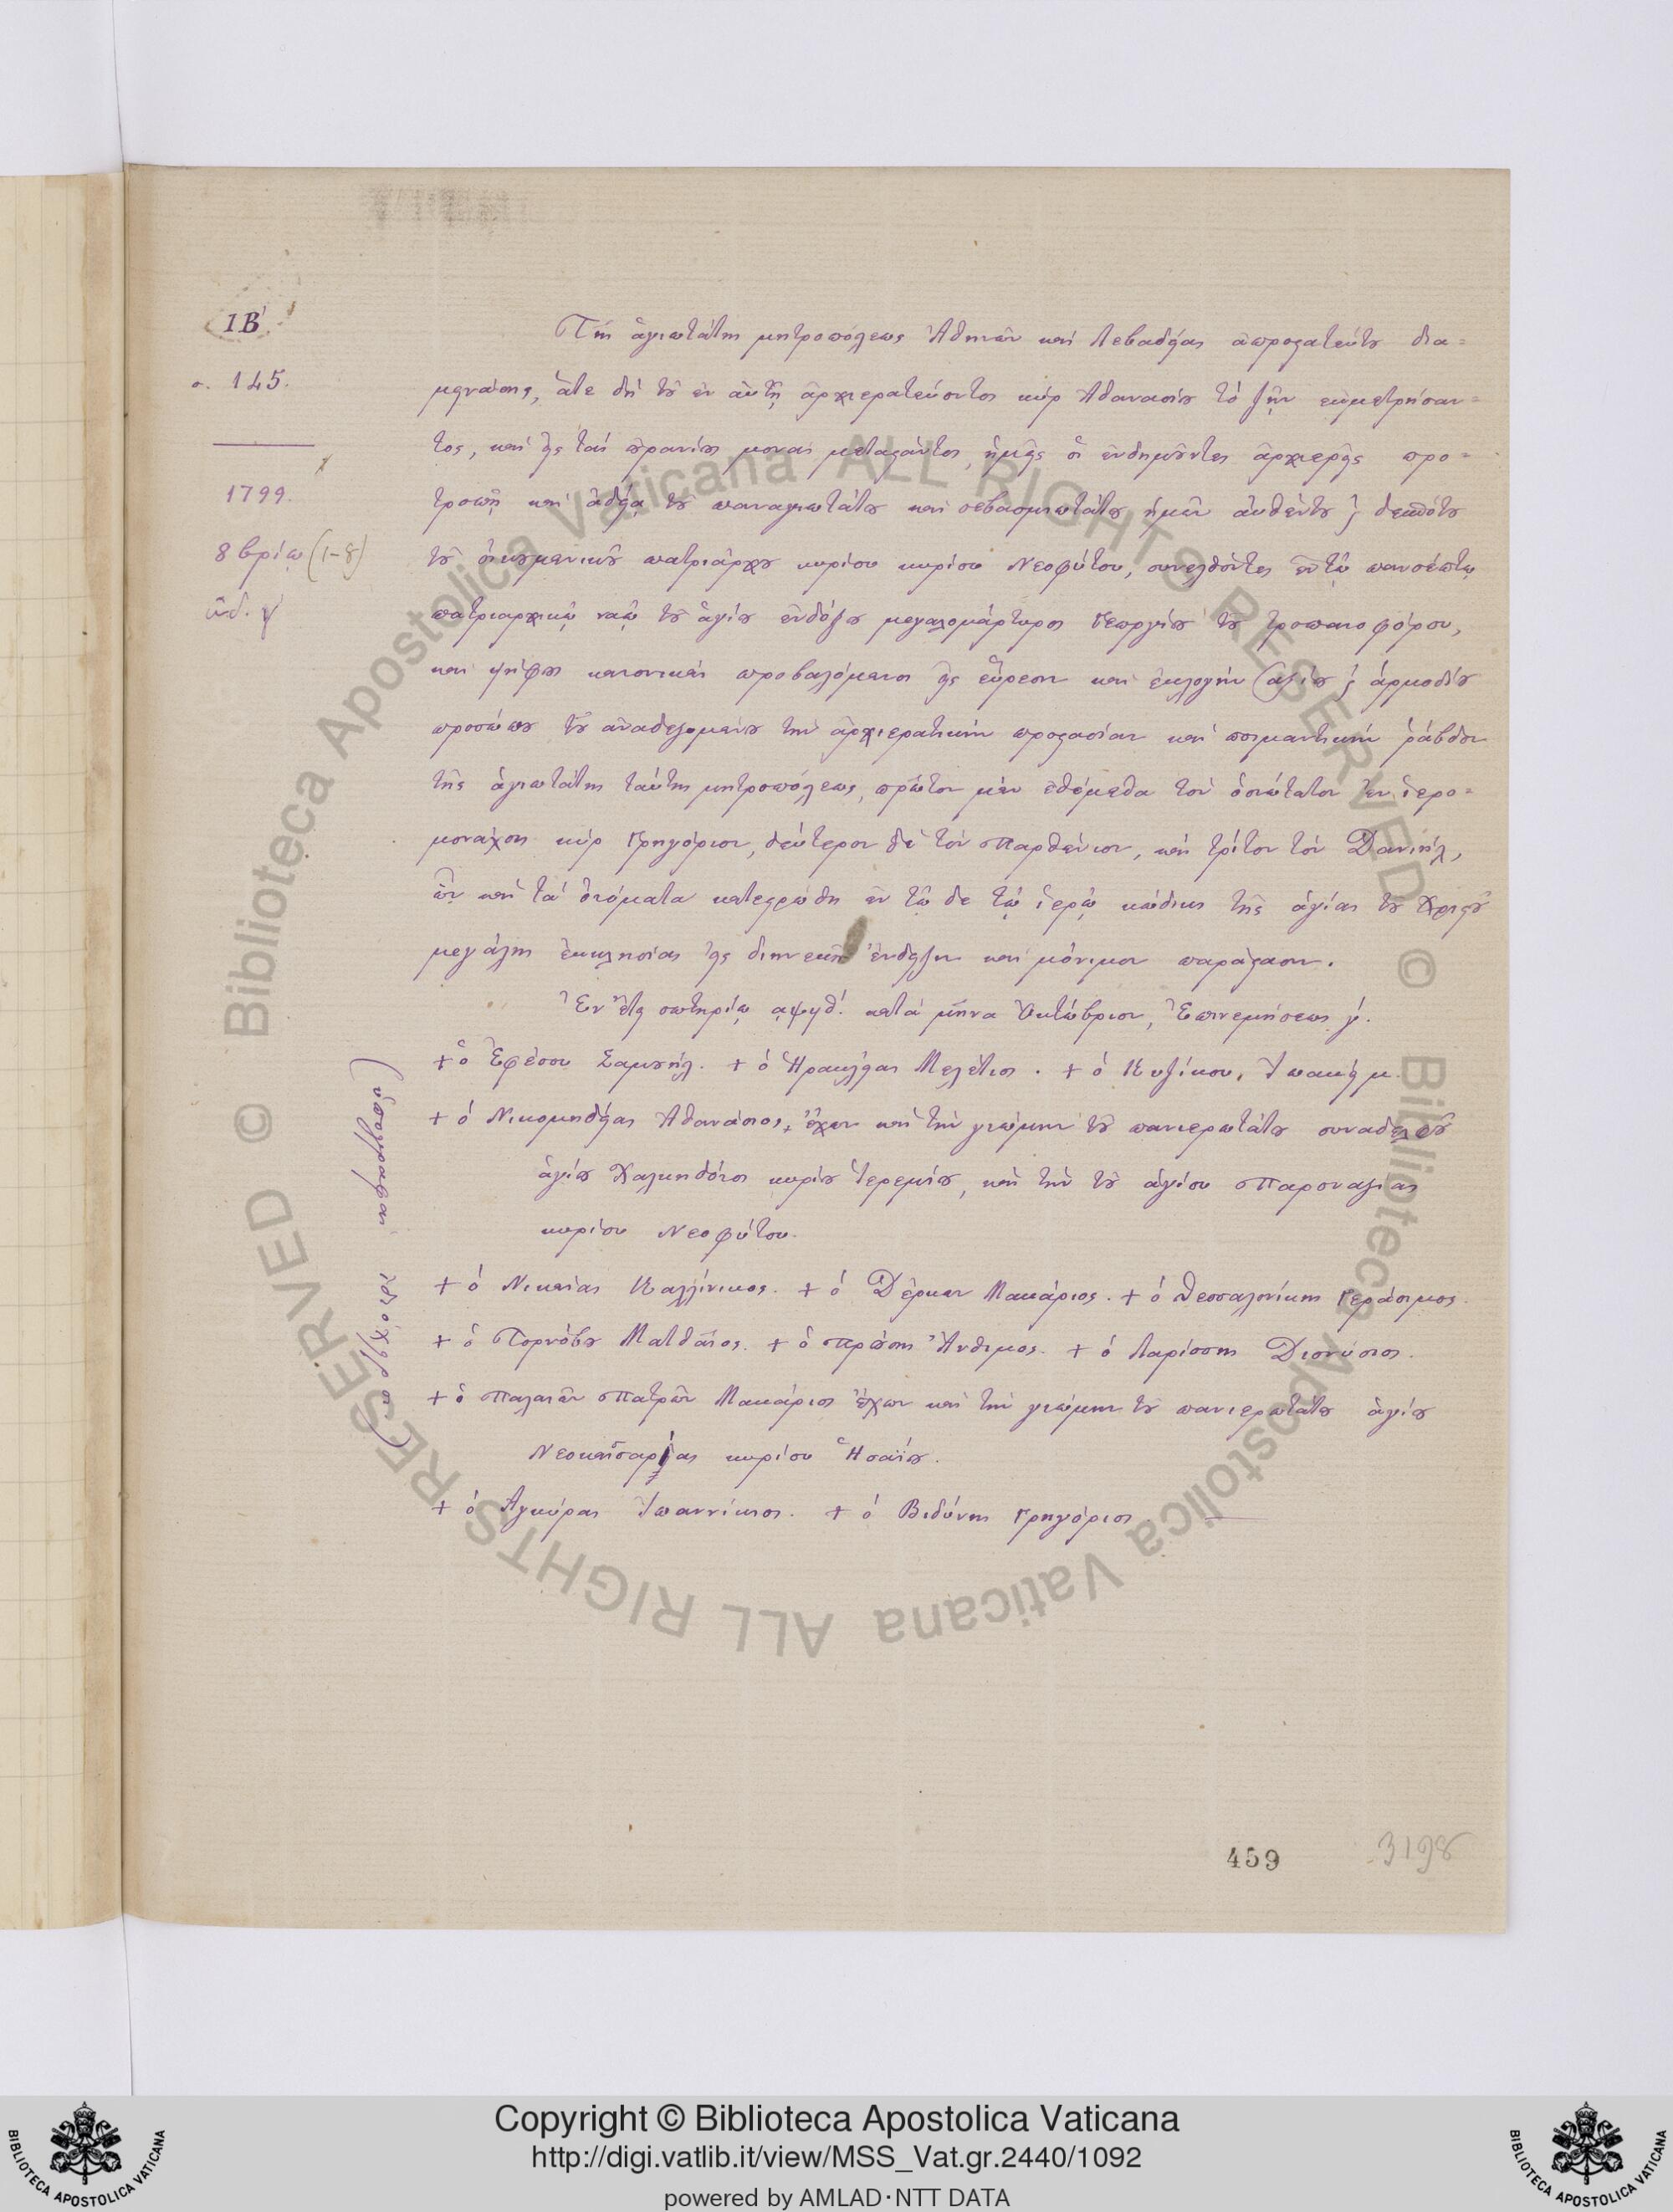 ΙΒ'.
σ. 145.
1799.
8βρίῳ (1-8)
ἰνδ. γ'
Τῆς ἁγιωτάτης μητροπόλεως Ἀθηνῶν καὶ Λεβαδείας ἀπροστατεύτου δια=
μεινάσης, ἅτε δὴ τοῦ ἐν αὐτῇ ἀρχιερατεύοντος κὺρ Ἀθανασίου τὸ ζῆν ἐκμετρήσαν=
τος, καὶ εἰς τὰς οὐρανίους μονὰς μεταστάντος, ἡμεῖς οἱ ἐνδημοῦντες ἀρχιερεῖς προ=
τροπῇ καὶ ἀδείᾳ τοῦ παναγιωτάτου καὶ σεβασμιωτάτου ἡμῶν αὐθέντου ϗ δεσπότου
τοῦ οἰκουμενικοῦ πατριάρχου κυρίου κυρίου Νεοφύτου, συνελθόντες ἐν τῷ πανσέπτῳ
πατριαρχικῷ ναῷ τοῦ ἁγίου ἐνδόξου μεγαλομάρτυρος Γεωργίου τοῦ τροπαιοφόρου,
καὶ ψήφους κανονικὰς προβαλόμενοι εἰς εὕρεσιν καὶ ἐκλογὴν ἀξίου ϗ ἁρμοδίου
προσώπου τοῦ ἀναδεξομένου τὴν ἀρχιερατικὴν προστασίαν καὶ ποιμαντικὴν ῥάβδον
τῆς ἁγιωτάτης ταύτης μητροπόλεως, πρῶτον μὲν ἐθέμεθα τὸν ὁσιώτατον ἐν ἱερο=
μονάχοις κὺρ Γρηγόριον, δεύτερον δὲ τὸν Παρθένιον, καὶ τρίτον τὸν Δανιήλ,
ὧν καὶ τὰ ὀνόματα κατεστρώθη ἐν τῷδε τῷ ἱερῷ κώδικι τῆς ἁγίας τοῦ Χριστοῦ
μεγάλης ἐκκλησίας εἰς διηνεκῆ ἔνδειξιν καὶ μόνιμον παράστασιν.
Ἐν ἔτει σωτηρίῳ ͵αψϟθ'. κατὰ μῆνα Ὀκτώβριον, Ἐπινεμήσεως γ'.
+ ὁ Ἐφέσου Σαμουήλ. + ὁ Ἡρακλείας Μελέτιος. + ὁ Κυζίκου, Ἰωακείμ.
+ ὁ Νικομηδείας Ἀθανάσιος, ἔχων καὶ τὴν γνώμην τοῦ πανιερωτάτου συναδελφοῦ
ἁγίου Χαλκηδόνος κυρίου Ἱερεμίου, καὶ τὴν τοῦ ἁγίου Παροναξίας
κυρίου Νεοφύτου.
+ ὁ Νικαίας Καλλίνικος. + ὁ Δέρκων Μακάριος. + ὁ Θεσσαλονίκης Γεράσιμος.
+ ὁ Τορνόβου Ματθαῖος. + ὁ Προύσης Ἄνθιμος. + ὁ Λαρίσσης Διονύσιος.
+ ὁ Παλαιῶν Πατρῶν Μακάριος ἔχων καὶ τὴν γνώμην τοῦ πανιερωτάτου ἁγίου
Νεοκαισαρείας κυρίου Ἡσαΐου.
+ ὁ Ἀγκύρας Ἰωαννίκιος. + ὁ Βιδύνης Γρηγόριος
459
3198
Copyright © Biblioteca Apostolica Vaticana
http://digi.vatlib.it/view/MSS_Vat.gr.2440/1092
powered by AMLAD·NTT DATA
BIBLIOTECA APOSTOLICA VATICANA
BIBLIOTECA APOSTOLICA VATICANA
© Biblioteca Apostolica Vaticana ALL RIGHTS RESERVED
© Biblioteca Apostolica Vaticana ALL RIGHTS RESERVED